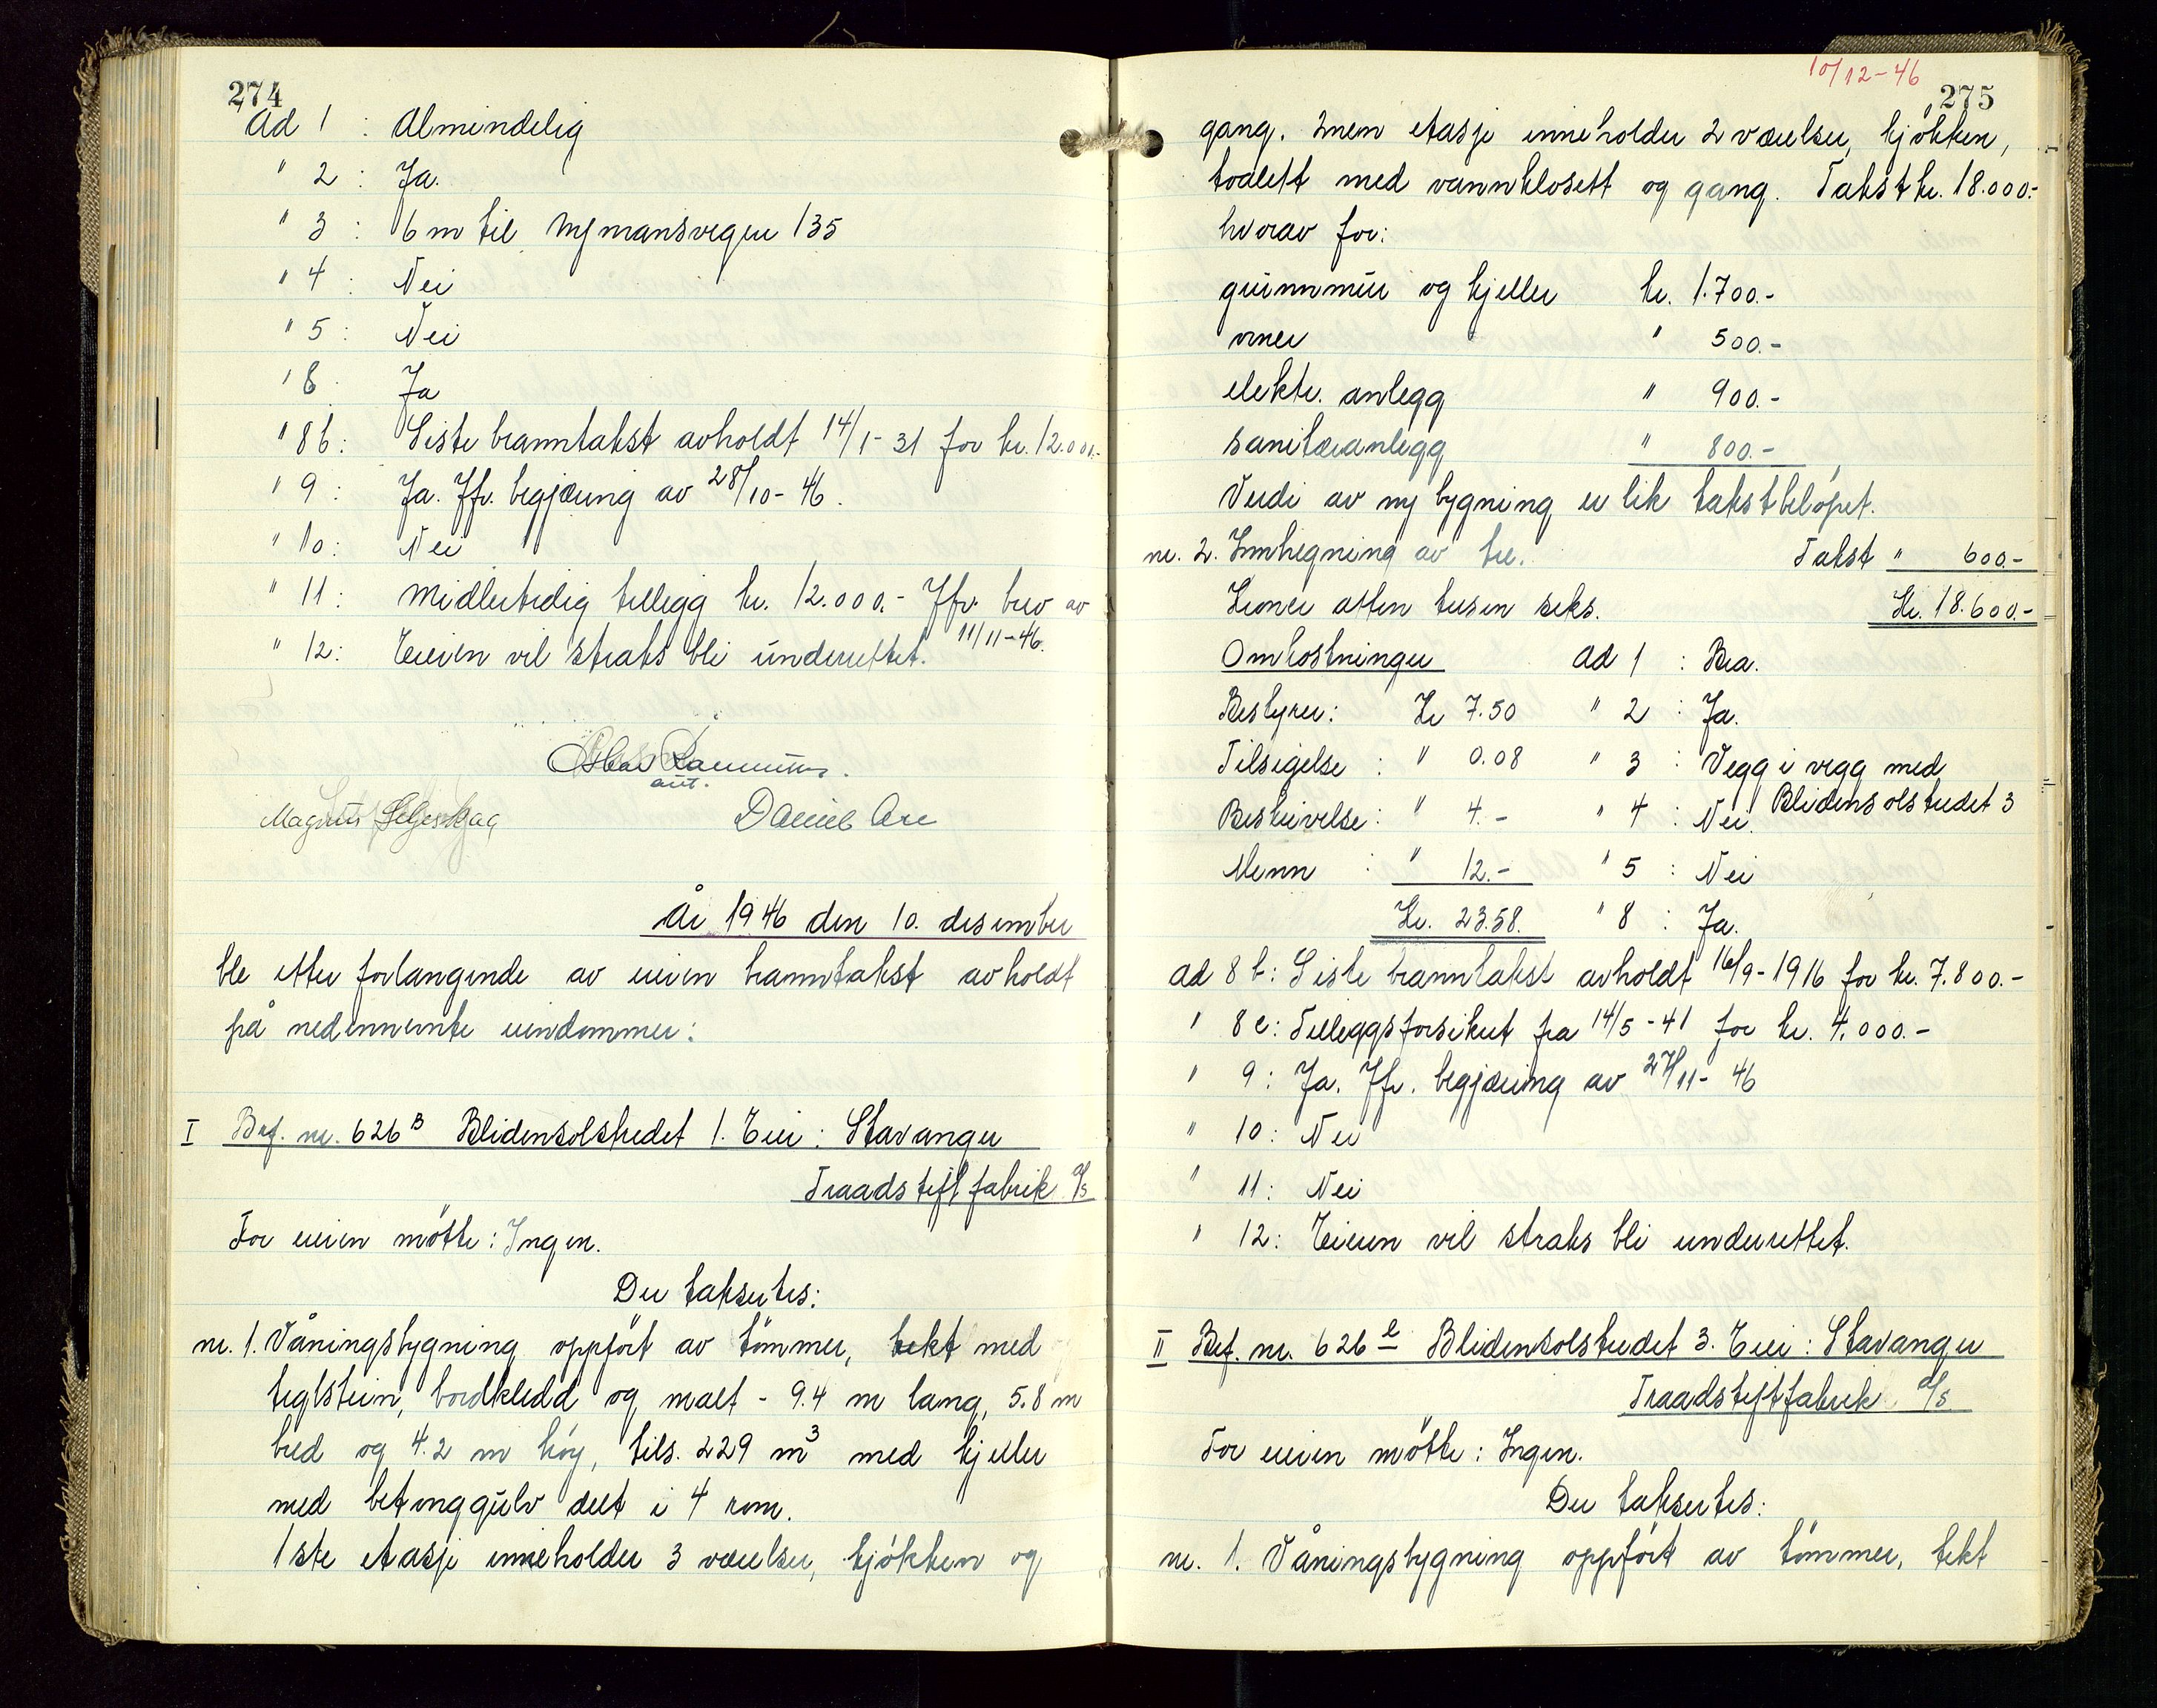 274
Ad 1 : Almindelig
" 2 : Ja.
" 3 : 6 m til Nymansvegen 135
" 4 : Nei
" 5 : Nei
" 8 : Ja
" 8b: Siste branntakst avholdt 14/1-31 for kr. 12.000.-
" 9 : Ja. Jfr. begjæring av 28/10-46.
" 10: Nei
" 11: Midlertidig tillegg kr. 12.000.- Jfr. brev av
11/11-46.
" 12: Eieren vil straks bli underrettet.
aut.
Magnus
Daniel
År 1946 den 10. desember
ble etter forlangende av eieren branntakst avholdt
på nedennevnte eiendommer:
I Brf. nr. 626 B Blidensolstredet 1. Eier: Stavanger
Traadstiftfabrik A/S
For eieren møtte: Ingen.
Der taksertes:
nr. 1. Våningsbygning oppført av tømmer, tekt med
teglstein, bordkledd og malt - 9.4 m lang, 5.8 m
bred og 4.2 m høy, tils. 229 m3 med kjeller
med betonggulv delt i 4 rom.
1ste etasje inneholder 3 værelser, kjøkken og
10/12-46
275
gang. 2nen etasje inneholder 2 værelser, kjøkken,
toalett med vannklosett og gang. Takst kr. 18.000.-
hvorav for:
grunnmur og kjeller kr. 1.700.-
ovner " 500.-
elektr. anlegg " 900.-
sanitæranlegg " 800.-
Verdi av ny bygning er lik takstbeløpet.
nr. 2. Innhegning av tre. Takst " 600.-
Kroner atten tusen seks. Kr. 18.600.-
Omkostninger Ad 1 : Bra.
Bestyrer: Kr 7.50 " 2 : Ja.
Tilsigelse : " 0.08 " 3 : Vegg i vegg med
Blidensolstredet 3
Beskrivelse: " 4.- " 4 : Nei.
Menn : " 12.- " 5 : Nei
Kr. 23.58. " 8 : Ja.
Ad 8 b: Siste branntakst avholdt 16/9-1916 for kr. 7.800.-
" 8 c: Tilleggsforsikret fra 14/5-41 for kr. 4.000.-
" 9: Ja. Jfr. begjæring av 27/11-46
" 10: Nei
" 11: Nei
" 12: Eieren vil straks bli underrettet.
II Brf. nr. 626 e Blidensolstredet 3. Eier: Stavanger
Traadstiftfabrik A/S
For eieren møtte: Ingen.
Der taksertes:
nr. 1. Våningsbygning oppført av tømmer, tekt